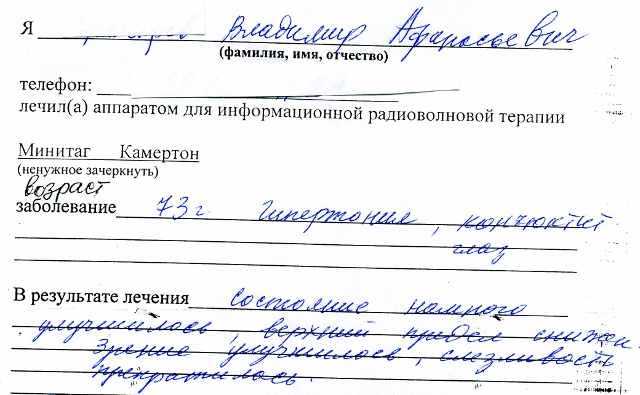 Я Владимир Афанасьевич
(фамилия, имя, отчество)
телефон:
лечил(а) аппаратом для информационной радиоволновой терапии
Минитаг Камертон
(ненужное зачеркнуть)
возраст
заболевание 73 г гипертония, конъюктит
глаз
В результате лечения состояние намного
улучшилось, верхний предел снижен.
Зрение улучшилось, слезливость
прекратилось.